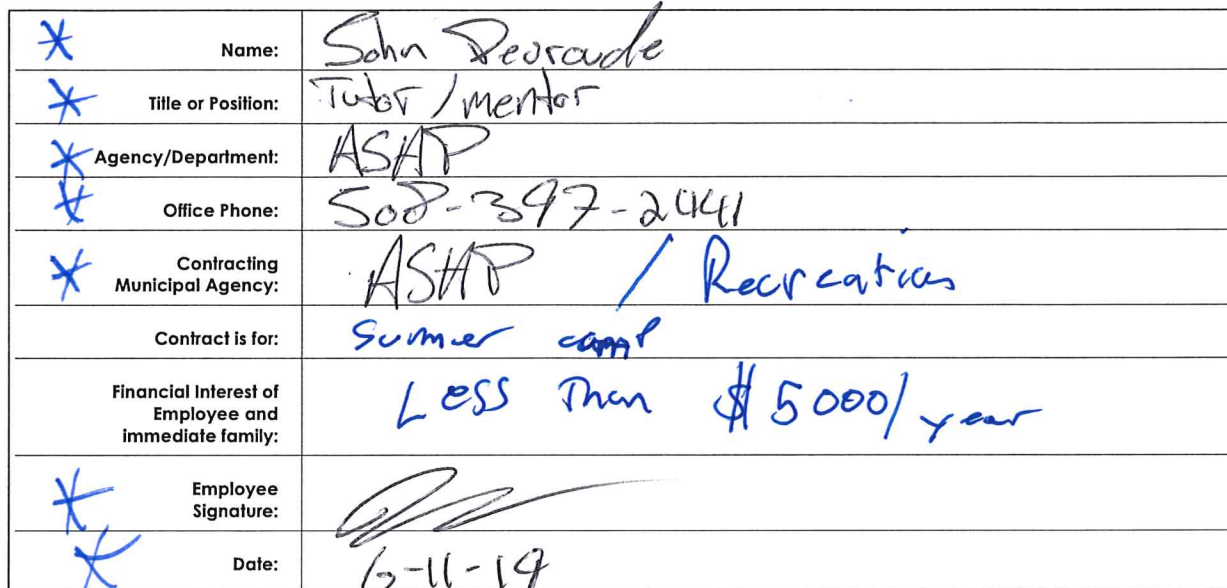 Name: John
Title or Position: Tutor / mentor
Agency/Department: ASAP
Office Phone: 508-397-2441
Contracting
Municipal Agency: ASAP / Recreation
Contract is for: Summer camp
Financial Interest of
Employee and
immediate family: Less Than $5000/year
Employee
Signature:
Date: 6-11-19